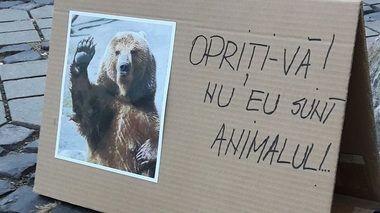 OPRIȚI-VĂ!
NU EU SUNT
ANIMALUL...